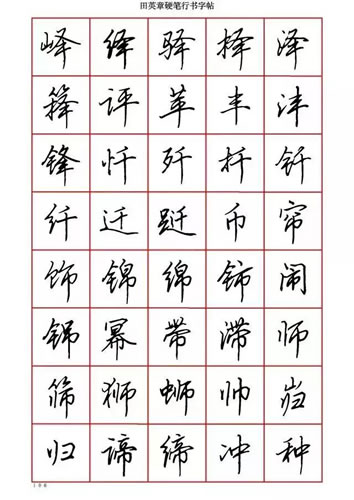 田英章硬笔行书字帖
峄 绎 驿 择 泽
箨 评 丰 沣
锋 忏 歼 扦 钎
纤 迁 跹 币 帘
饰 锦 绵 铈 闹
幂 带 滞 师
筛 狮 蛳 帅 岿
归 谛 缔 冲 种